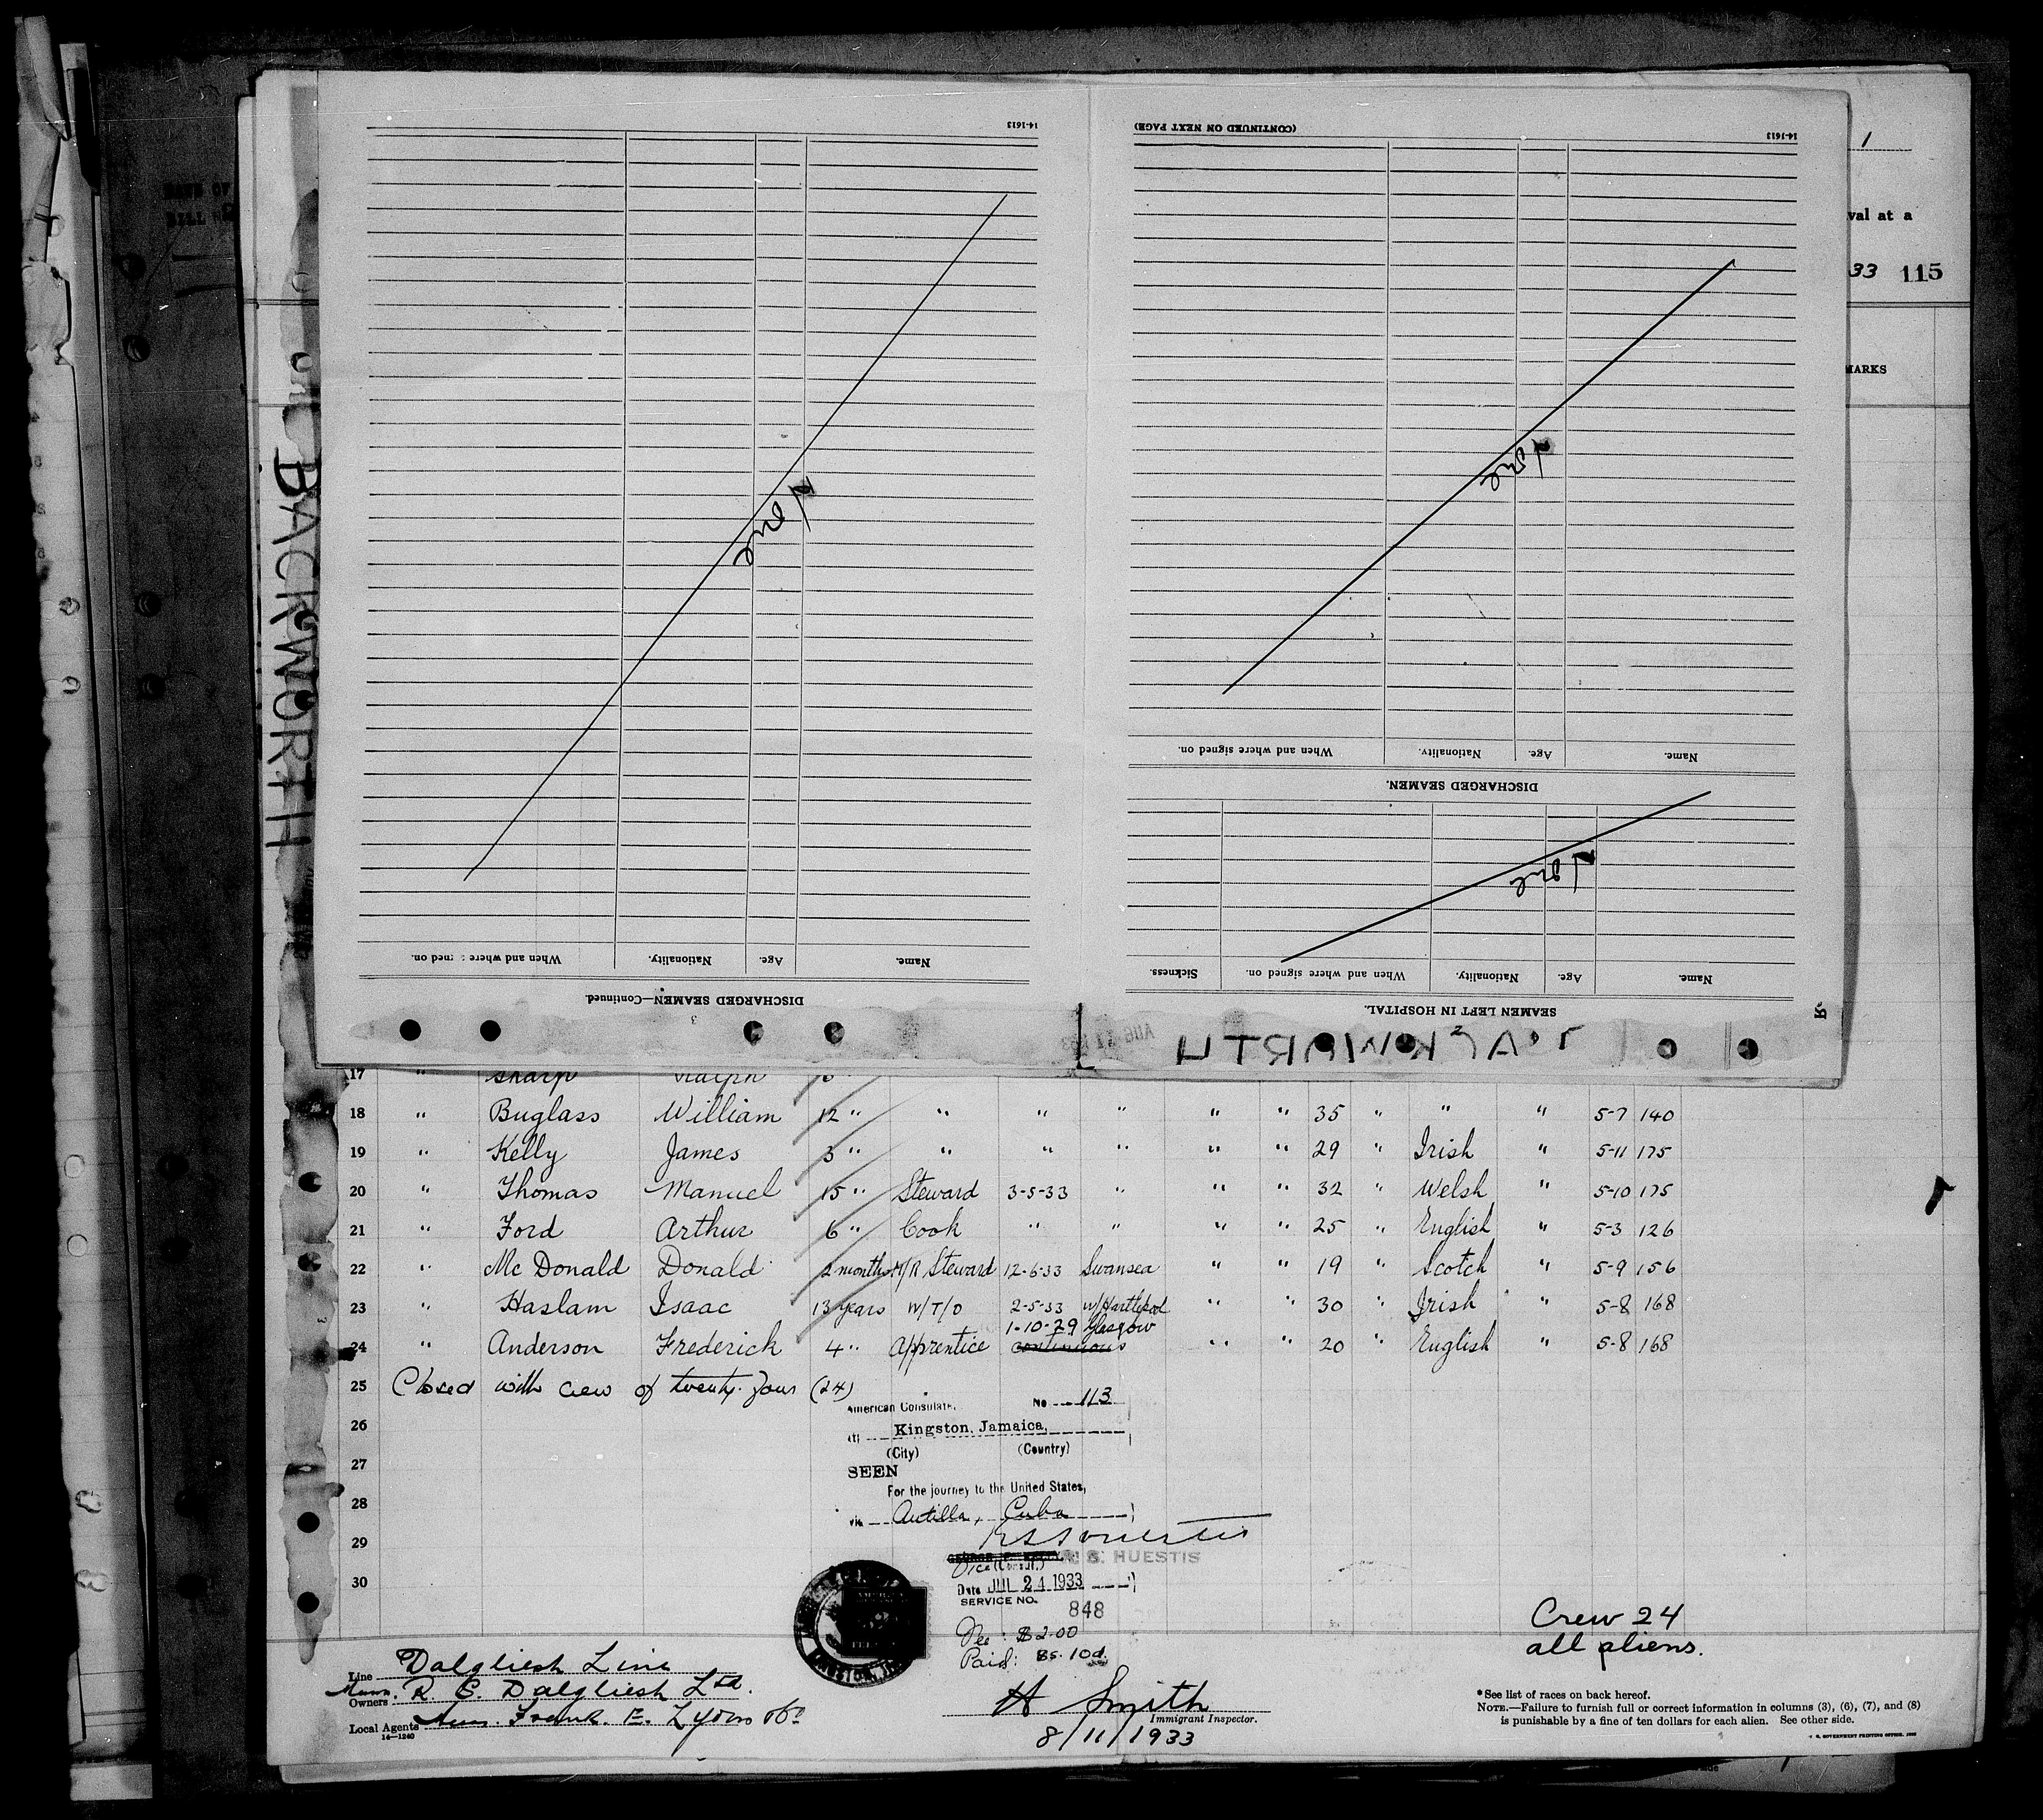 14-1613
DISCHARGED SEAMEN—Continued.
3
Name. Age. Nationality. When and where signed on.
None
(CONTINUED ON NEXT PAGE)
14-1613
SEAMEN LEFT IN HOSPITAL.
2
Name. Age. Nationality. When and where signed on. Sickness.
None
DISCHARGED SEAMEN.
Name. Age. Nationality. When and where signed on.
None
BACKWORTH
1
val at a
33 115
MARKS
17 " Sharp Ralph
18 " Buglass William 12 " " " " " " 35 " " " 5-7 140
19 " Kelly James 3 " " " " " " 29 " Irish " 5-11 175
20 " Thomas Manuel 15 " Steward 3-5-33 " " " 32 " Welsh " 5-10 175
21 " Ford Arthur 6 " Cook " " " " 25 " English " 5-3 126
22 " Mc Donald Donald 2 months M/R Steward 12-6-33 Swansea " " 19 " Scotch " 5-9 156
23 " Haslam Isaac 13 years W/T/O 2-5-33 W/Hartlepool " " 30 " Irish " 5-8 168
1-10-29 Glasgow
24 " Anderson Frederick 4 " Apprentice continuous " " 20 " English " 5-8 168
25 Closed with crew of twenty four (24)
American Consulate, No 113
26
(at) Kingston, Jamaica,
(City) (Country)
27
SEEN
For the journey to the United States,
28
via Antilla, Cuba
29
HUESTIS
Vice Consul
30
Date JUL 24 1933
SERVICE NO. 848
Fee: $2.00
Paid: 8s. 10d.
Crew 24
all aliens.
Line Dalgliesh Line
Owners R. S. Dalgliesh Ltd.
Local Agents Frank E. Lyons
14-1240
H Smith
Immigrant Inspector.
8/11/1933
*See list of races on back hereof.
NOTE.—Failure to furnish full or correct information in columns (3), (6), (7), and (8)
is punishable by a fine of ten dollars for each alien. See other side.
GOVERNMENT PRINTING OFFICE